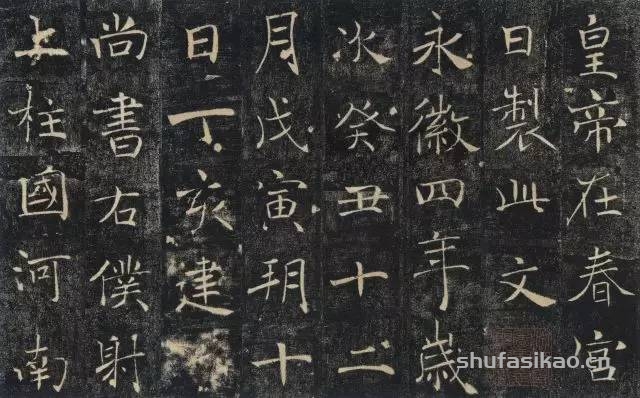 皇帝在春宮
日製此文
永徽四年歲
次癸丑十二
月戊寅朔十
日丁亥建
尚書右僕射
上柱國河南
shufasikao.cn